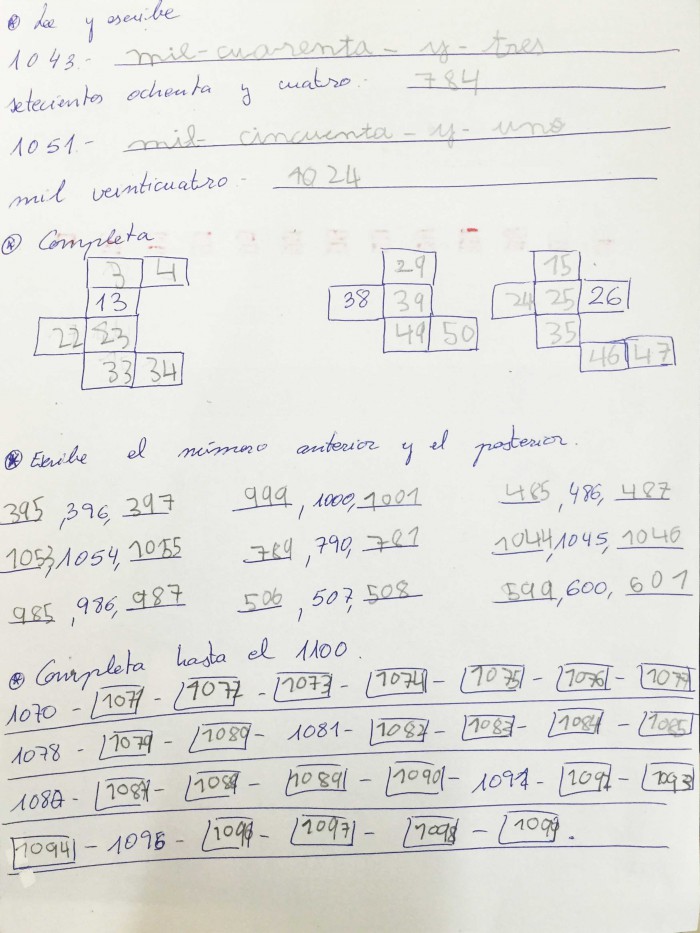 Lee y escribe
1043.- mil-cuarenta-y-tres
setecientos ochenta y cuatro. 784
1051.- mil-cincuenta-y-uno
mil veinticuatro. 1024
Completa
3 4 29 15
13 38 39 24 25 26
22 23 49 50 35
33 34 46 47
Escribe el número anterior y el posterior.
395, 396, 397 999, 1000, 1001 485, 486, 487
1053, 1054, 1055 789, 790, 781 1044, 1045, 1046
985, 986, 987 506, 507, 508 599, 600, 601
Completa hasta el 1100.
1070 - 1071 - 1072 - 1073 - 1074 - 1075 - 1076 - 1077
1078 - 1079 - 1080 - 1081 - 1082 - 1083 - 1084 - 1085
1088 - 1089 - 1090 - 1091 - 1092 - 1093
1094 - 1095 - 1096 - 1097 - 1098 - 1099.